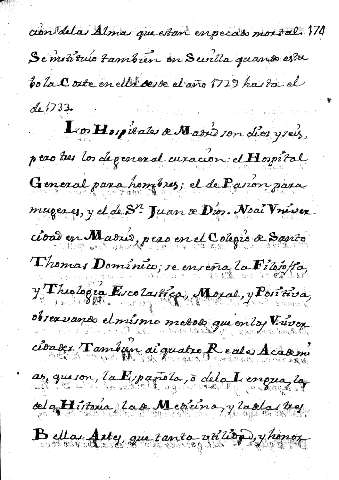 cion de las Almas que estan en pecado mortal. 174
Se instituló tambien en Sevilla quando estu
bo la Corte en ella desde el año 1729 hasta el
de 1733.
Los Hospitales de Madrid son dies y seis,
pero tres los de general curacion: el Hospital
General para hombres; el de Pasion para
mugeres, y el de Sn. Juan de Dios. No ai Vniver
cidad en Madrid, pero en el Colegio de Santo
Thomas Dominico; se enseña la Filosofia,
y Theologia Escolastica, Moral, y Positiva,
observando el mismo metodo que en las Vniver
cidades. Tambien ai quatro Reales Academi
as, que son, la Española, ò de la Lengua, la
de la Historia, la de Medicina, y la de las tres
Bellas Artes, que tanta utilidad, y honor